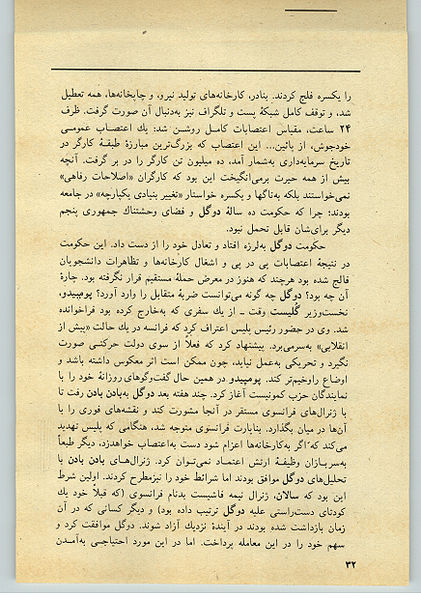 را یکسره فلج کردند. بنادر، کارخانه‌های تولید نیرو، و چاپخانه‌ها، همه تعطیل
شد، و توقف کامل شبکهٔ پست و تلگراف نیز به‌دنبال آن صورت گرفت. ظرف
۲۴ ساعت، مقیاس اعتصابات کامل روشن شد: یك اعتصاب عمومی
خودجوش، از پائین... این اعتصاب که بزرگ‌ترین مبارزهٔ طبقهٔ کارگر در
تاریخ سرمایه‌داری به‌شمار آمد، ده میلیون تن کارگر را در بر گرفت. آنچه
بیش از همه حیرت برمی‌انگیخت این بود که کارگران «اصلاحات رفاهی»
نمی‌خواستند بلکه به‌ناگها و یکسره خواستار «تغییر بنیادی یکپارچه» در جامعه
بودند؛ چرا که حکومت ده سالهٔ دوگل و فضای وحشتناك جمهوری پنجم
دیگر برای‌شان قابل تحمل نبود.
حکومت دوگل به‌لرزه افتاد و تعادل خود را از دست داد. این حکومت
در نتیجهٔ اعتصابات پی در پی و اشغال کارخانه‌ها و تظاهرات دانشجویان
فالج شده بود هرچند که هنوز در معرض حملهٔ مستقیم قرار نگرفته بود. چارهٔ
آن چه بود؟ دوگل چه گونه می‌توانست ضربهٔ متقابل را وارد آورد؟ پومپیدو،
نخست‌وزیر گلیست وقت ـ از یك سفری که به‌خارج کرده بود فراخوانده
شد. وی در حضور رئیس پلیس اعتراف کرد که فرانسه در یك حالت «پیش از
انقلابی» به‌سرمی‌برد. پیشنهاد کرد که فعلاً از سوی دولت حرکتی صورت
نگیرد و تحریکی به‌عمل نیاید، چون ممکن است اثر معکوس داشته باشد و
اوضاع راوخیم‌تر کند. پومپیدو در همین حال گفت‌وگوهای روزانهٔ خود را با
نمایندگان حزب کمونیست آغاز کرد. چند هفته بعد دوگل به‌بادن بادن رفت تا
با ژنرال‌های فرانسوی مستقر در آنجا مشورت کند و نقشه‌های فوری را با
آن‌ها در میان بگذارد. بناپارت فرانسوی متوجه شد، هنگامی که پلیس تهدید
می‌کند که اگر به‌کارخانه‌ها اعزام شود دست به‌اعتصاب خواهدزد، دیگر طبعاً
به‌سربازان وظیفهٔ ارتش اعتماد نمی‌توان کرد. ژنرال‌های بادن بادن با
تحلیل‌های دوگل موافق بودند اما شرائط خود را نیزمطرح کردند. اولین شرط
این بود که سالان، ژنرال نیمه فاشیست بدنام فرانسوی (که قبلاً خود یك
کودتای دست‌راستی علیه دوگل ترتیب داده بود) و دیگر کسانی که در آن
زمان بازداشت شده بودند در آیندهٔ نزدیك آزاد شوند. دوگل موافقت کرد و
سهم خود را در این معامله پرداخت. اما در این مورد احتیاجی به‌آمدن
۳۲